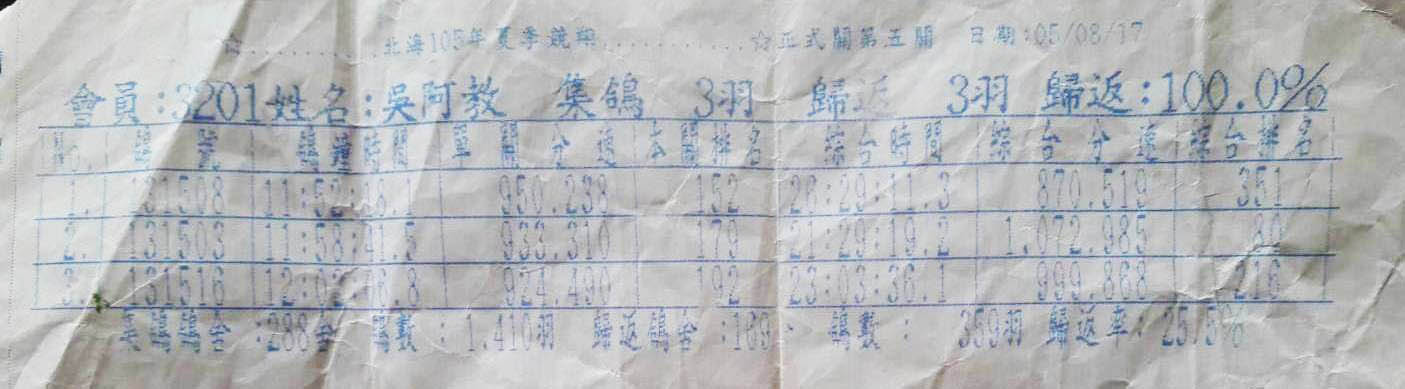 ☆............北海105年夏季競翔............☆正式關第五關 日期:05/08/17
會員:3201姓名:吳阿教 集鴿 3羽 歸返 3羽 歸返:100.0%
時間 單關分速 本關排名 綜合時間 綜合分速 綜合排名
1. 131508 950.238 152 26:29:11.3 870.519 351
2. 131503 11:58:41.5 933.310 179 21:29:19.2 1,072.985
3. 131516 924.490 192 23:03:36.1 999.868 216
:288舍 鴿數: 1,410羽 歸返鴿舍:169 鴿數: 359羽 歸返率: 25.5%